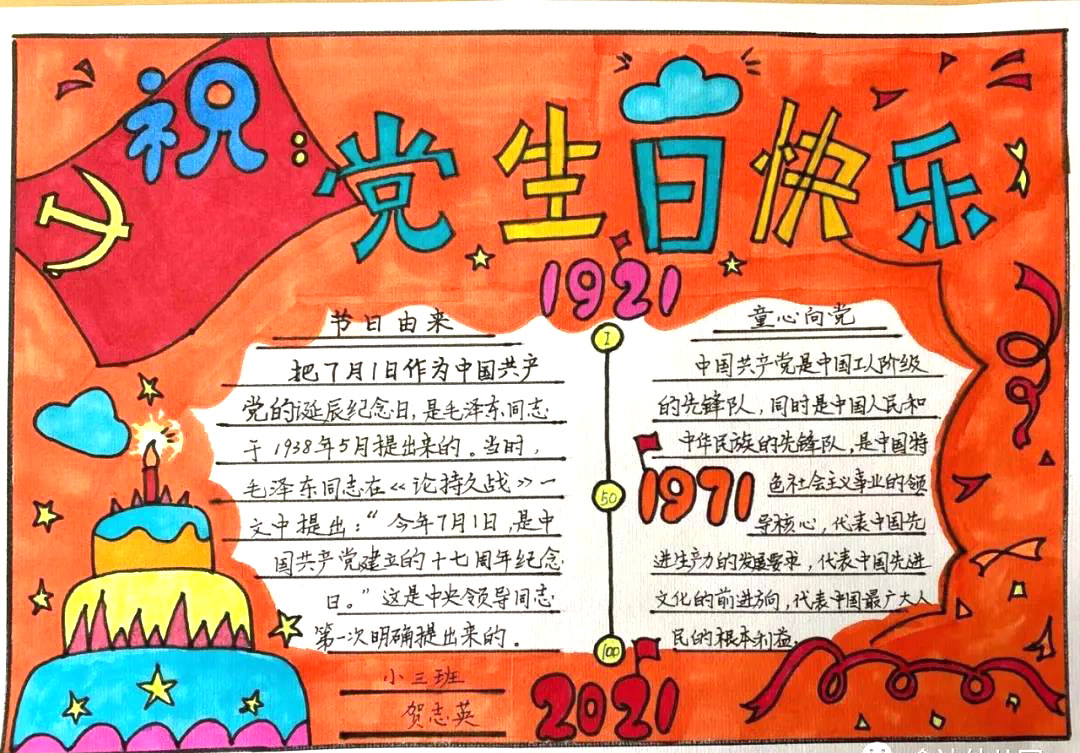 祝：党生日快乐
1921
节日由来
把7月1日作为中国共产
党的诞辰纪念日，是毛泽东同志
于1938年5月提出来的。当时，
毛泽东同志在《论持久战》一
文中提出：“今年7月1日，是中
国共产党建立的十七周年纪念
日。”这是中央领导同志
第一次明确提出来的。
小三班
贺志英
1
50
1971
100
2021
童心向党
中国共产党是中国工人阶级
的先锋队，同时是中国人民和
中华民族的先锋队，是中国特
色社会主义事业的领
导核心，代表中国先
进生产力的发展要求，代表中国先进
文化的前进方向，代表中国最广大人
民的根本利益。